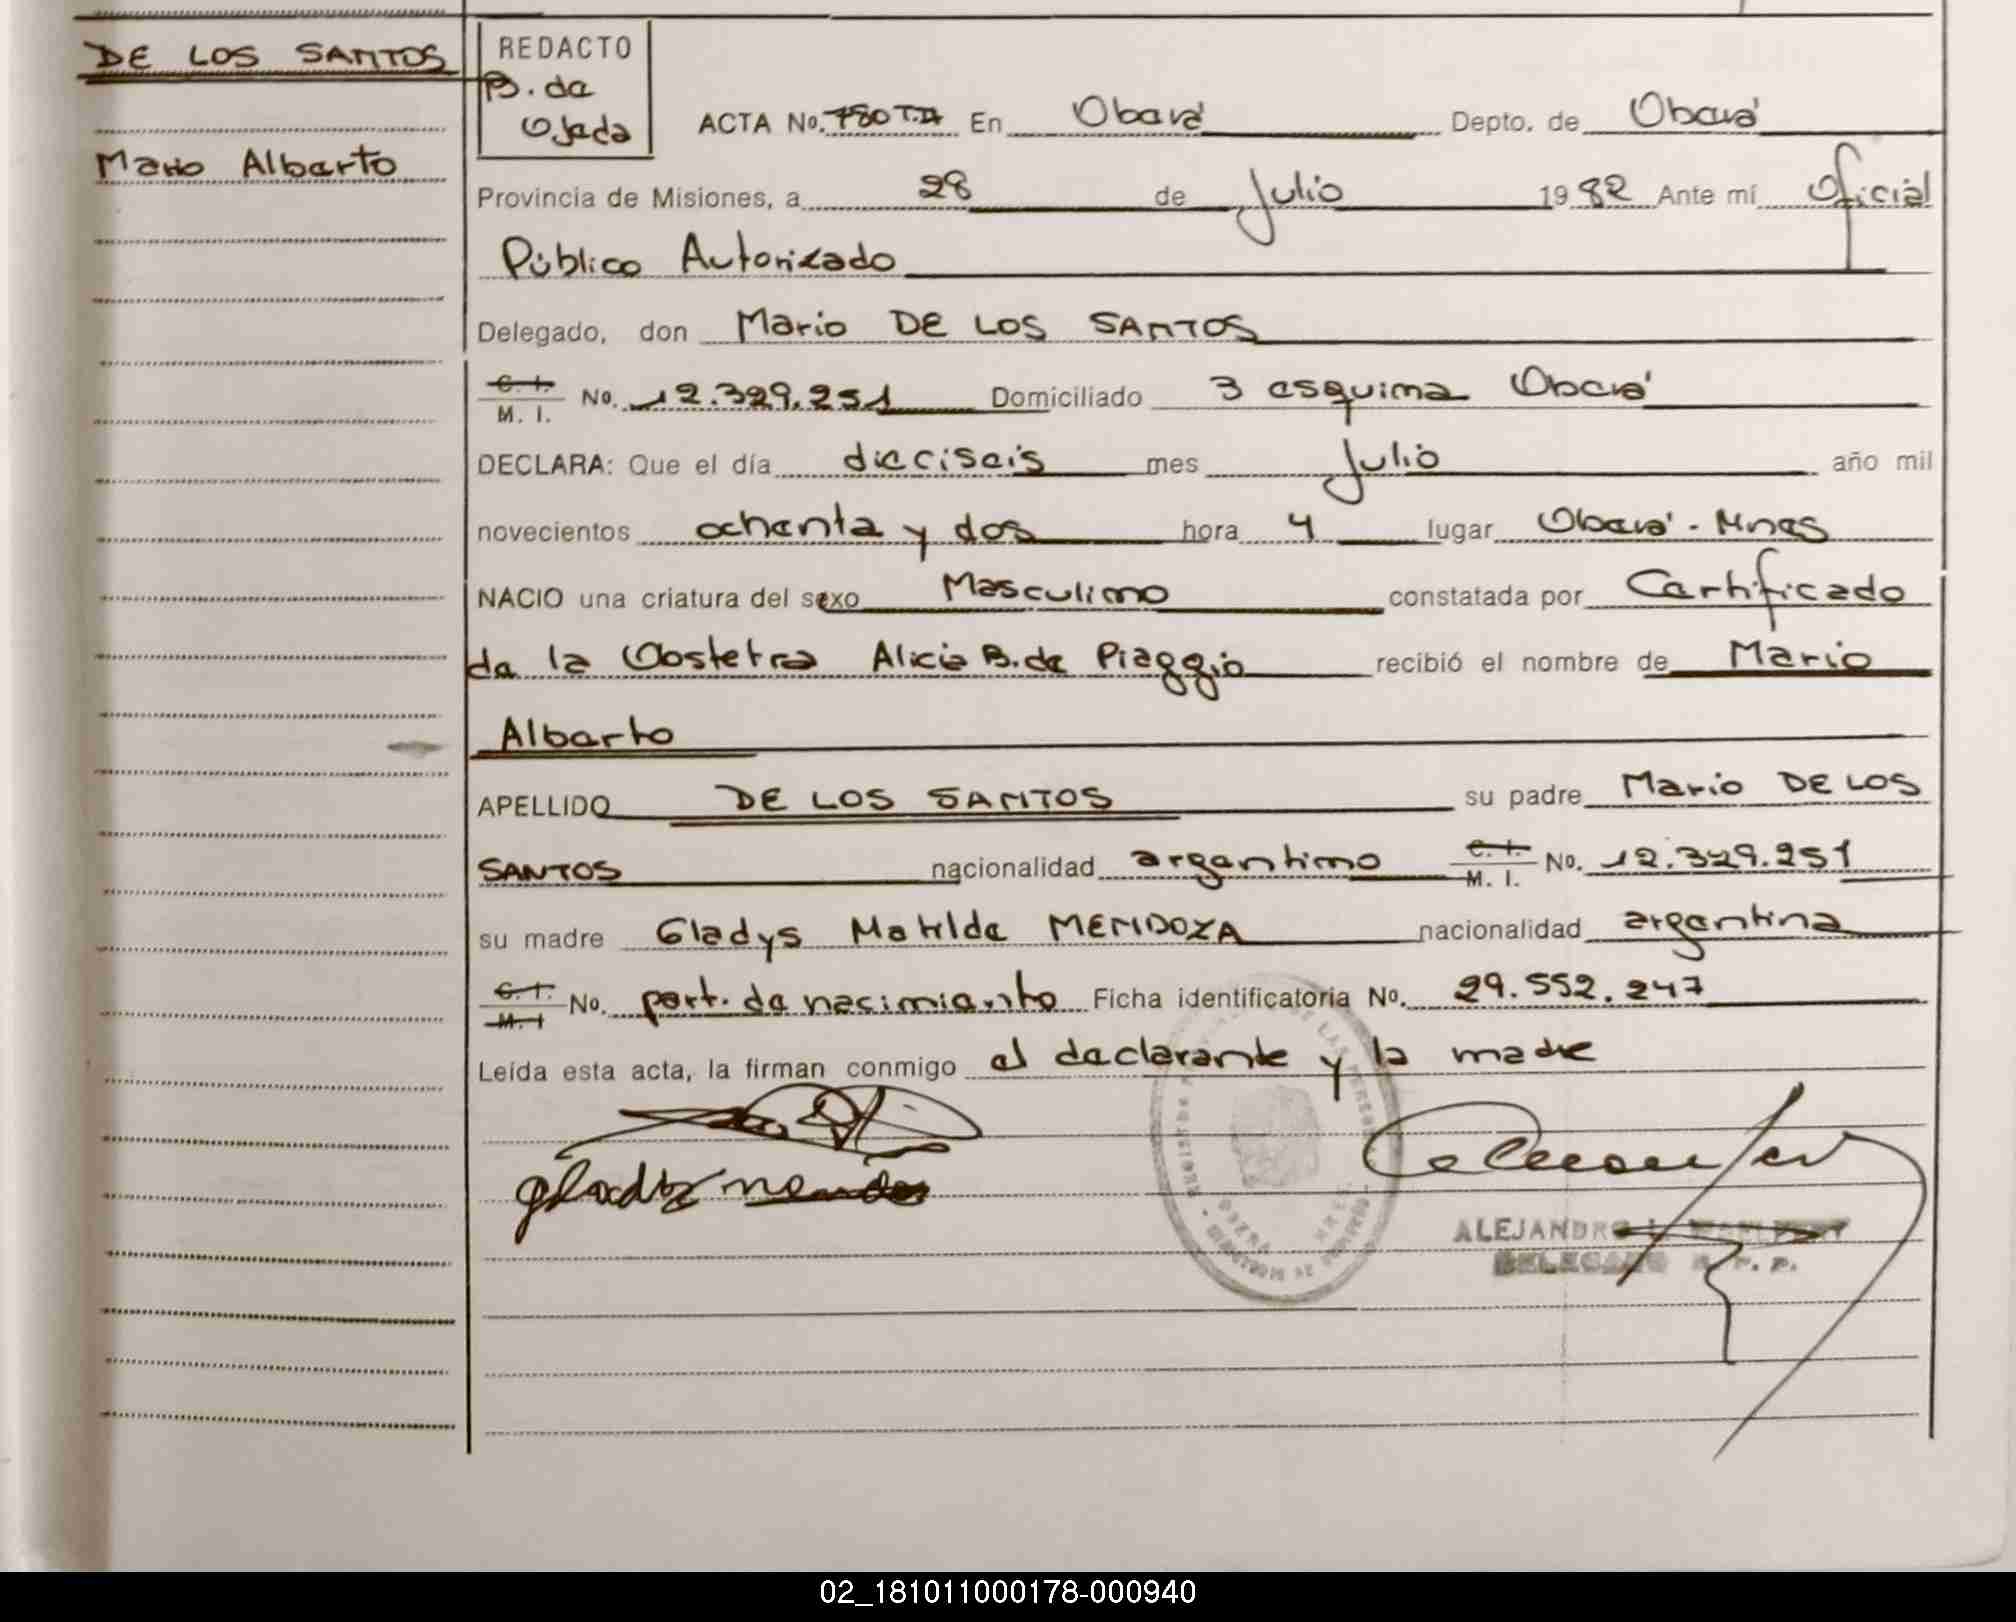 DE LOS SANTOS
Mario Alberto
REDACTO
B. de
Ojeda
ACTA No. 780 T.II En Oberá Depto. de Oberá
Provincia de Misiones, a 28 de Julio 1982 Ante mí Oficial
Público Autorizado
Delegado, don Mario DE LOS SANTOS
C. I. M. I. No. 12.329.251 Domiciliado 3 esquina Oberá
DECLARA: Que el día dieciseis mes Julio año mil
novecientos ochenta y dos hora 4 lugar Oberá - Mnes
NACIO una criatura del sexo Masculino constatada por Certificado
de la Obstetra Alicia B. de Piaggio recibió el nombre de Mario
Alberto
APELLIDO DE LOS SANTOS su padre Mario DE LOS
SANTOS nacionalidad argentino C. I. M. I. No. 12.329.251
su madre Gladys Matilde MENDOZA nacionalidad argentina
C. I. M. I No. part. de nacimiento Ficha identificatoria No. 29.552.247
Leída esta acta, la firman conmigo el declarante y la madre
ALEJANDRO
DELEGADO R. P. P.
02_181011000178-000940